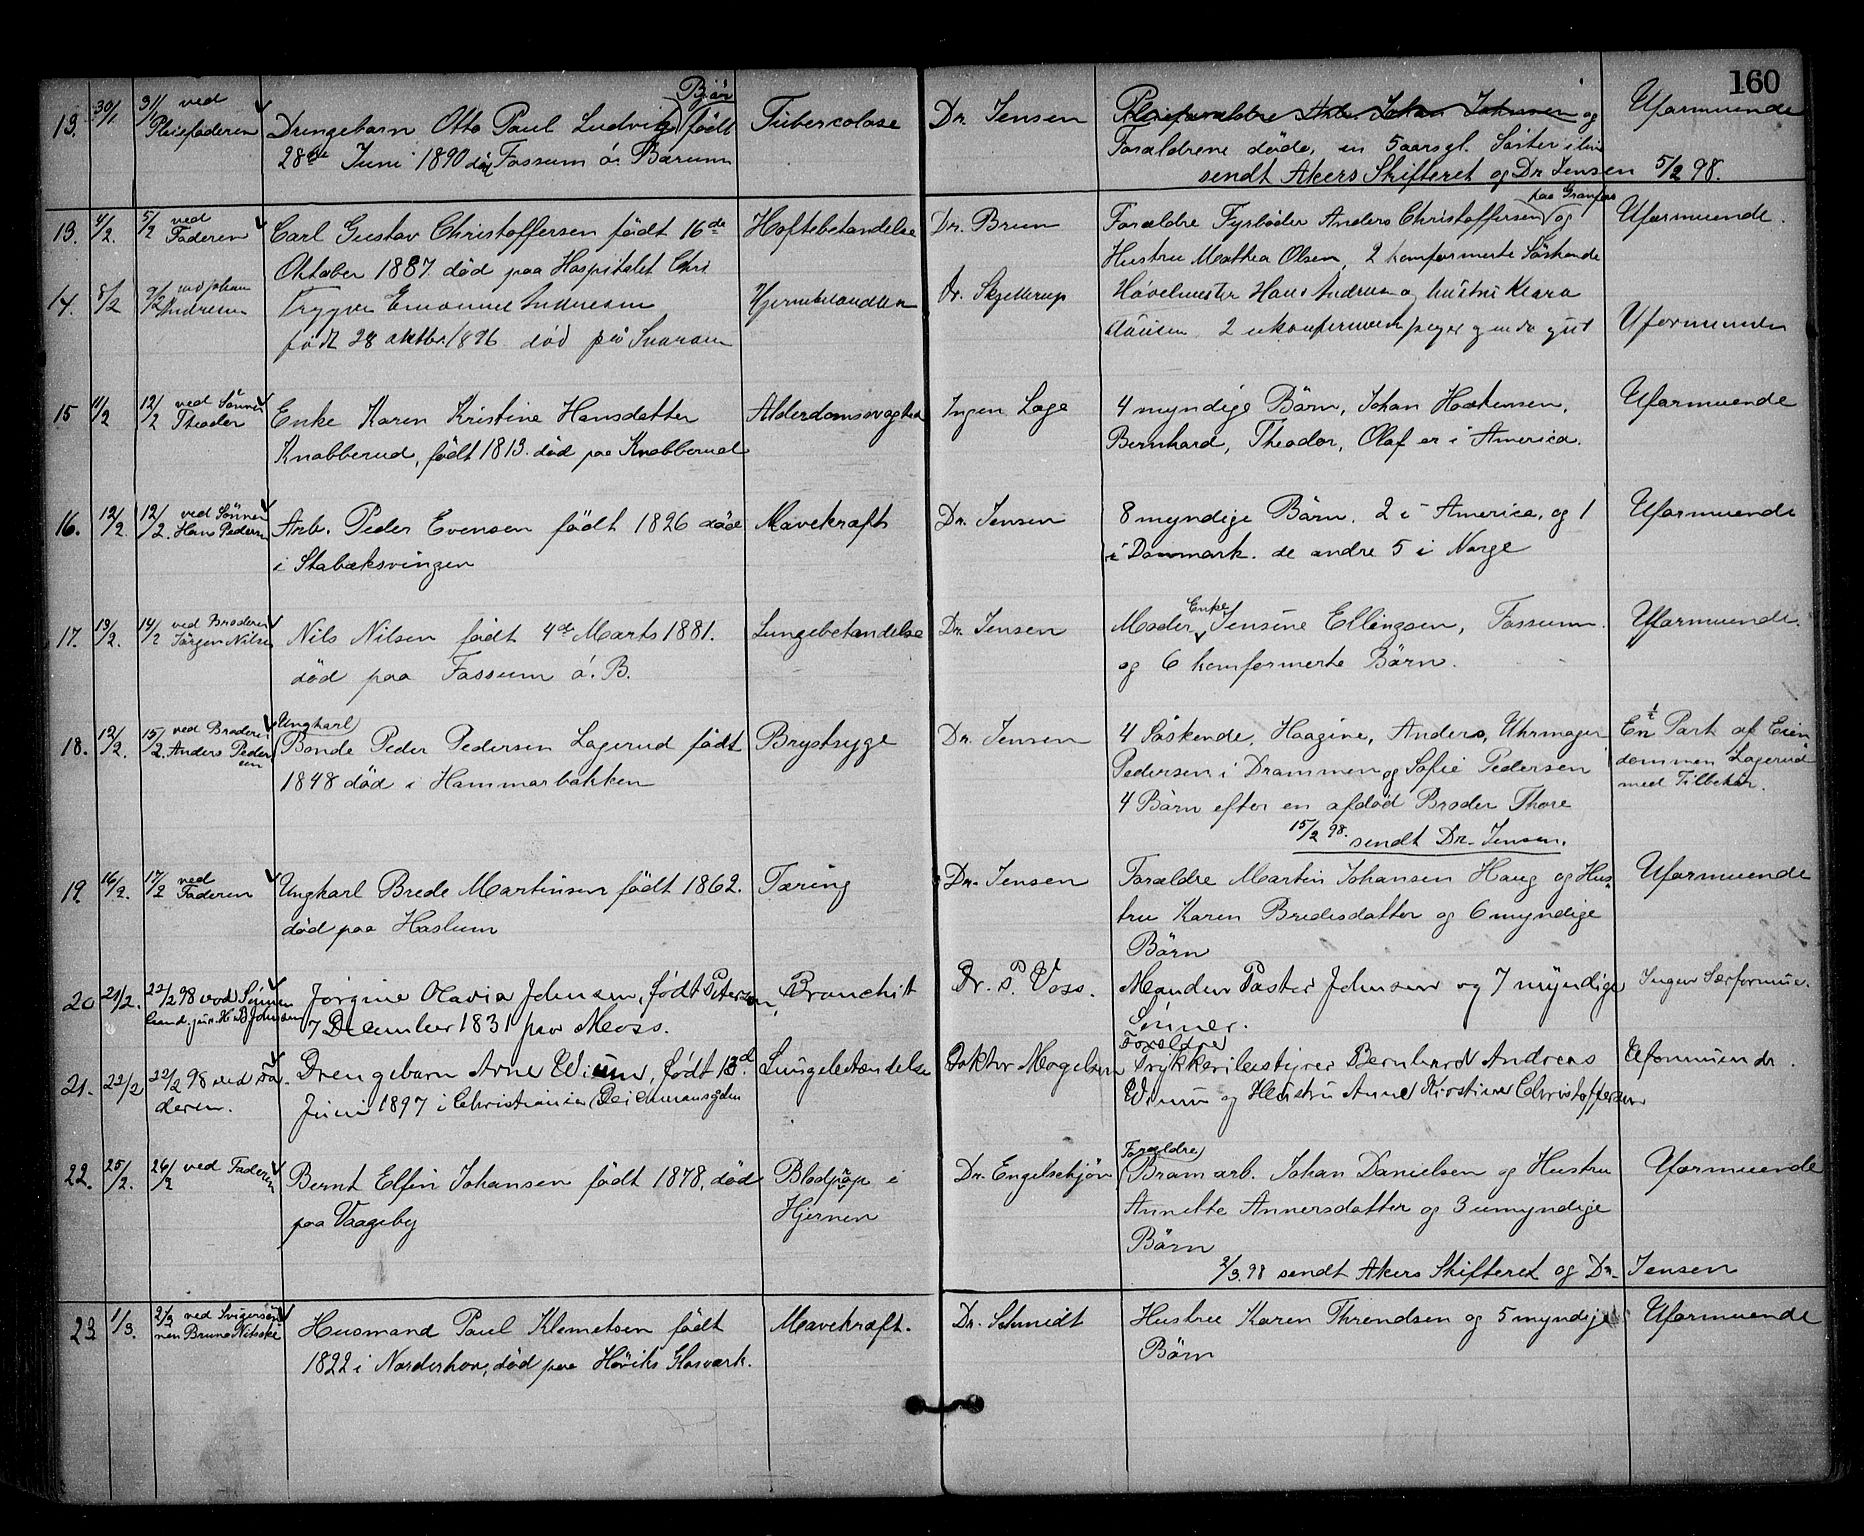 160
13. 30/1 31/1 ved Pleiefaderen Drengebarn Otto Paul Ludvig Bjør født Tubercolose Dr. Jensen Pleieforældre Arb. Johan Johnsen og Uformuende
28de Juni 1890 død Fossum ö. Bærum Forældrene døde, en 5 aars gl. Søster i live
sendt Akers Skifteret og Dr Jensen 5/2 98.
13. 4/2. 5/2 ved Faderen Carl Gustav Christoffersen født 16de Hoftebetændelse Dr. Bruun Forældre Fyrbøder Anders Christoffersen paa Granfos og Uformuende.
Oktober 1887. død paa Hospitalet Chri Hustru Mathea Olsen, 2 komfermerte Söskende
14. 8/2 9/2 Andresen Trygve Emanuel Andresen Hjernebetændelse Dr. Skjelterup Høvelmester Hans Andresen og hustru Klara
født 28 oktbr. 1896 død på Snarøen Clausen 2 ukonfirmerede piger og en do gut Uformuende
15 11/2 12/2 ved Sønnen Theodor Enke Karen Kristine Hansdatter Alderdomssvaghed Ingen Læge 4 myndige Börn, Johan Haakensen, Uformuende
Knabberud, født 1813. död paa Knabberud Bernhard, Theodor, Olaf er i America.
16. 12/2. 12/2. ved Sönnen Hans Pedersen Arb. Peder Evensen födt 1826 död Mavekræft Dr. Jensen 8 myndige Börn. 2 i America, og 1 Uformuende
i Stabæksvingen i Danmark. de andre 5 i Norge
17. 13/2. 14/2 ved Broderen Jörgen Nilsen Nils Nilsen födt 4de Marts 1881. Lungebetændelse Dr. Jensen Moder Enke Jensine Ellingsen, Fossum. Uformuende.
död paa Fossum ö. B. og 6 komfermerte Börn.
18. 12/2. 15/2. ved Broderen Anders Pedersen Ungkarl Bonde Peder Pedersen Lagerud født Brystsyge Dr. Jensen 4 Söskende, Haagine, Anders, Uhrmager En 1/2 Part af Eien
1848 død i Hammerbakken Pedersen i Drammen og Sofie Pedersen dommen Lagerud
4 Börn efter en afdød Broder Thore med Tilbehör.
15/2 98. sendt Dr. Jensen.
19. 16/2. 17/2 ved Faderen Ungkarl Brede Martinsen födt 1862. Tæring Dr. Jensen Forældre Martin Johansen Haug og Hus- Uformuende
död paa Haslum tru Karen Bredesdatter og 6 myndige
Börn
20 21/2. 22/2 98 ved Sønnen cand. jur. H. B. Johnsen Jörgine Olavia Johnsen, født Petersen, Bronchit Dr. P. Voss. Manden Pastor Johnsen og 7 myndige Ingen Særformue.
7 December 1831 paa Moss. Sønner.
21. 22/2 22/2 98 ved Faderen. Drengebarn Arne Wium, født 13de Lungebetændelse Doktor Magelssen Forældre Trykkeribestyrer Bernhard Andreas Uformuende.
Juni 1897 i Christiania (Deichmansgden Wium og Hustru Anne Kirstine Christoffersen
22. 25/2. 26/2 ved Faderen Bernt Elfin Johansen født 1878, død Blodprop i Dr. Engelskjøn Forældre Bramarb. Johan Danielsen og Hustru Uformuende
paa Vaageby Hjernen Annette Annersdatter og 3 umyndige
Börn
2/3. 98 sendt Akers Skifteret og Dr. Jensen
23 1/3. 2/3 ved Svigersønnen Bruno Nitsche Husmand Paul Klemetsen født Mavekræft. Dr. Schmidt Hustru Karen Throndsen og 5 myndige Uformuende
1822 i Norderhov, død paa Høviks Glasværk. Börn